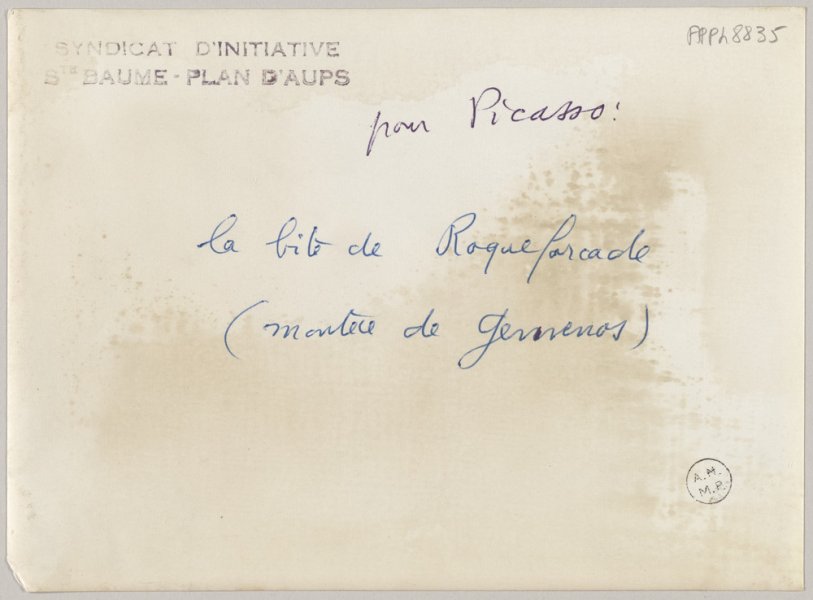 SYNDICAT D'INITIATIVE
STE BAUME - PLAN D'AUPS
APPh8835
pour Picasso:
la bite de Roqueforcade
(montée de Gemenos)
A.H.
M.P.